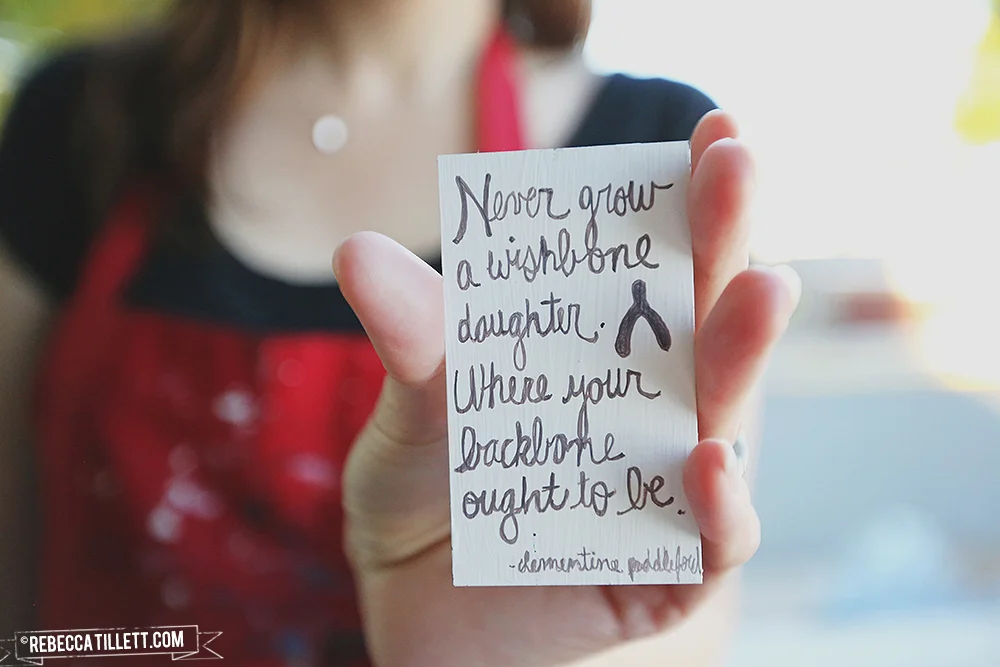 Never grow
a wishbone
daughter.
Where your
backbone
ought to be.
-clementine paddleford
©REBECCATILLETT.COM